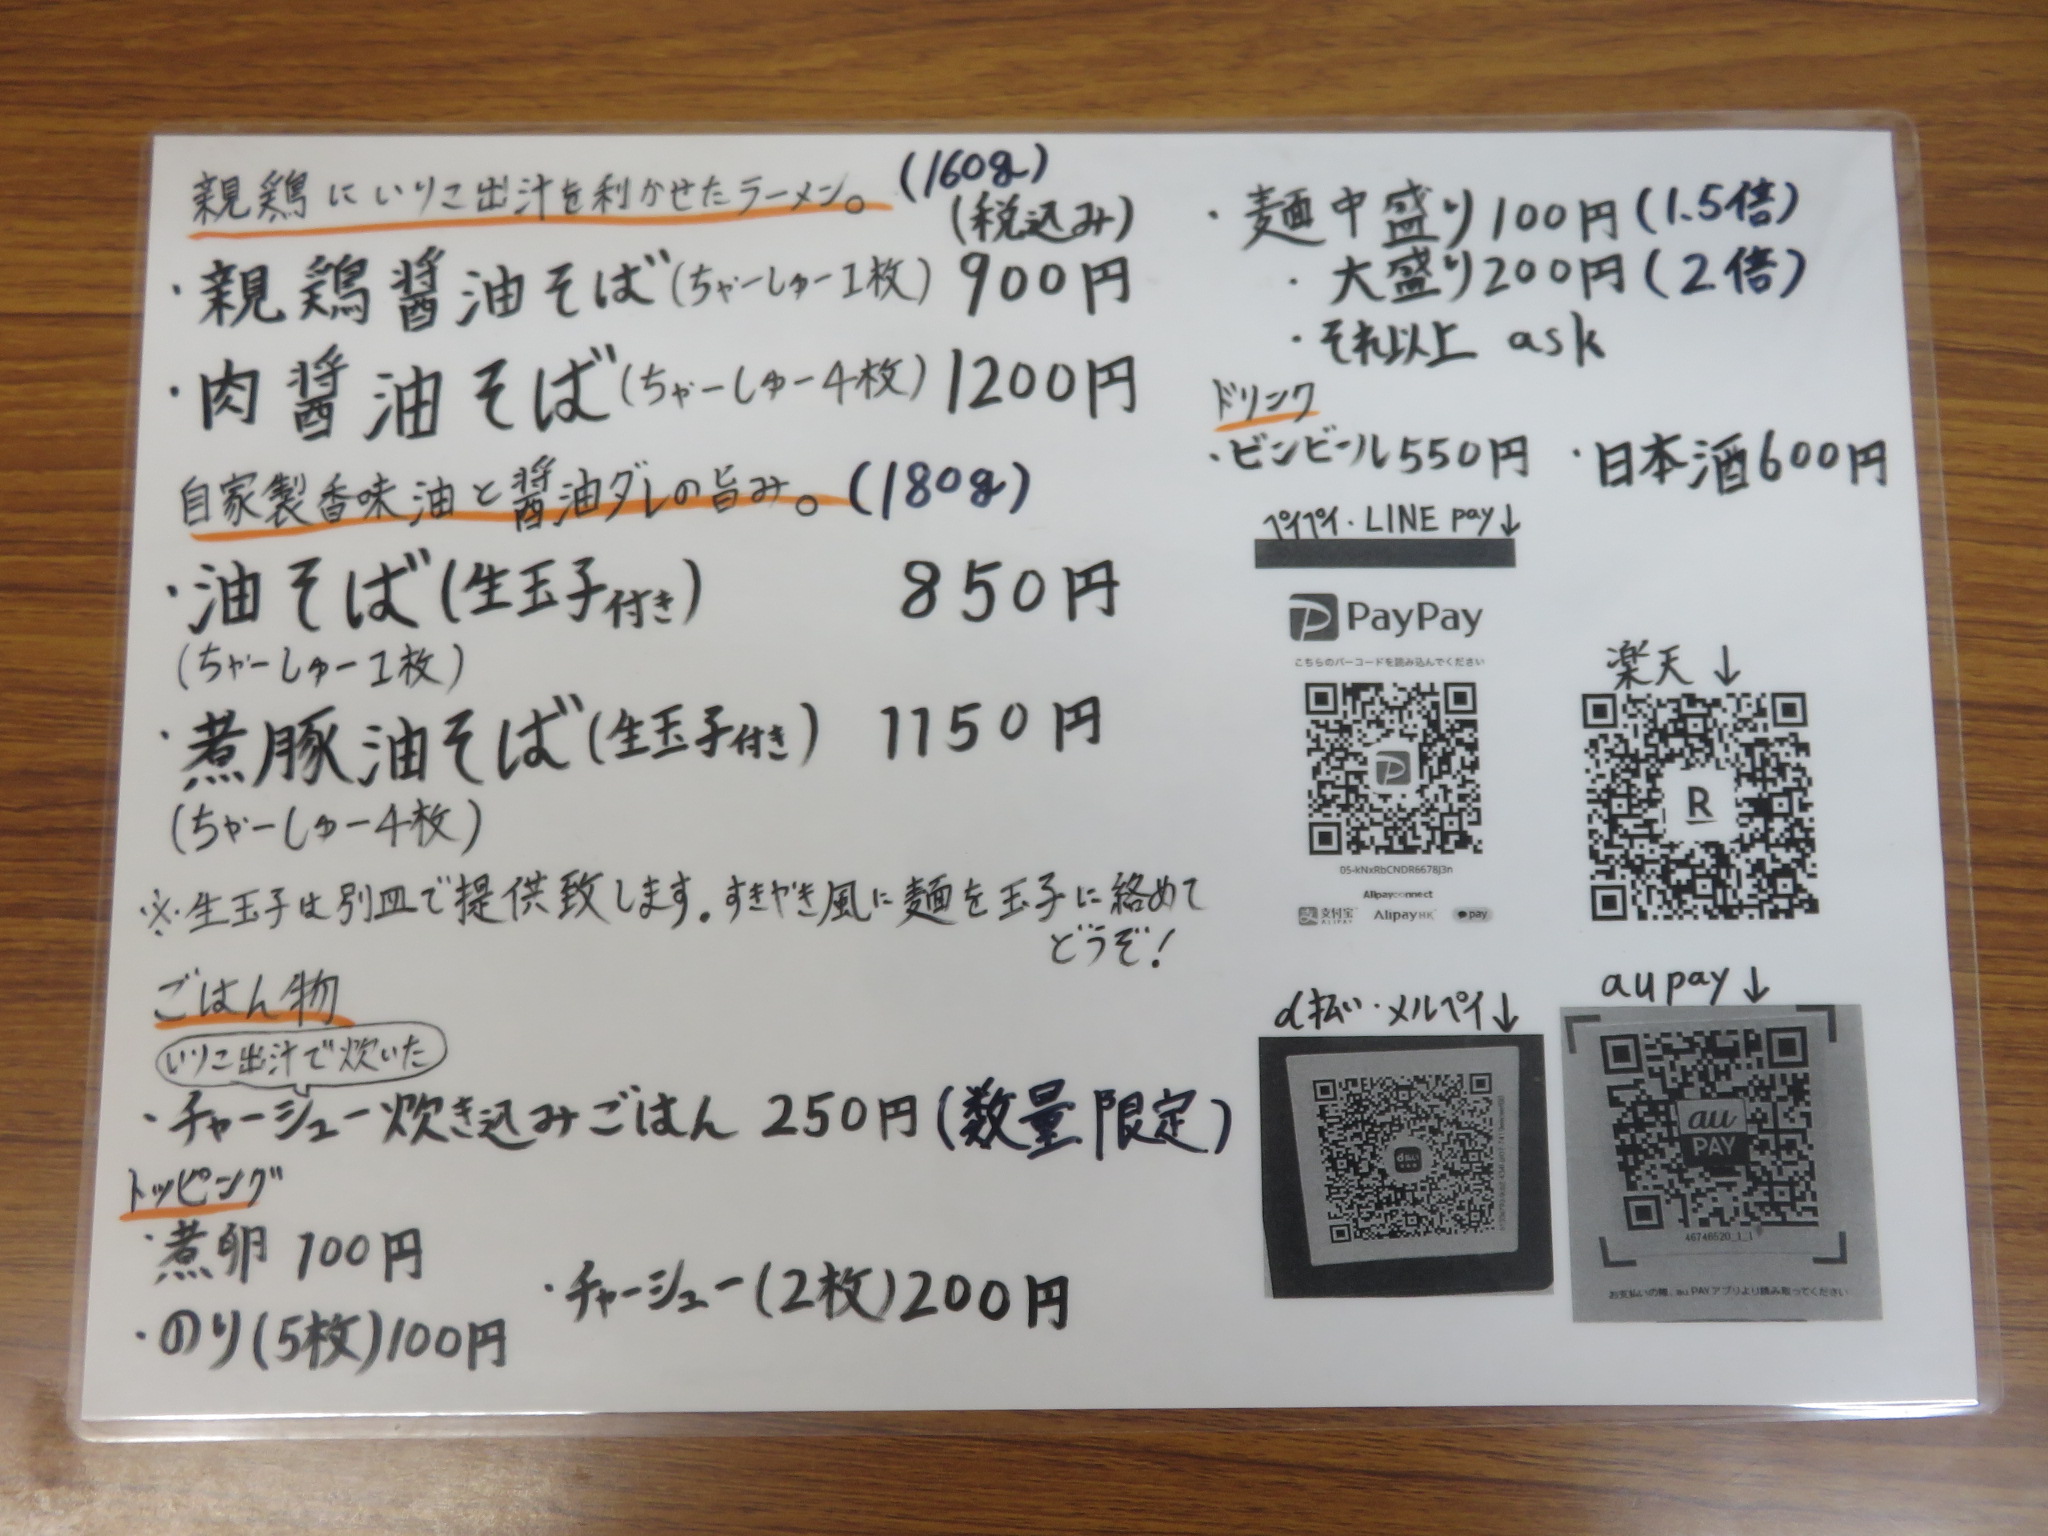 親鶏にいりこ出汁を利かせたラーメン。(160g)
(税込み)
・親鶏醤油そば(ちゃーしゅー1枚) 900円
・肉醤油そば(ちゃーしゅー4枚) 1200円
自家製香味油と醤油ダレの旨み。(180g)
・油そば(生玉子付き) 850円
(ちゃーしゅー1枚)
・煮豚油そば(生玉子付き) 1150円
(ちゃーしゅー4枚)
※生玉子は別皿で提供致します。すきやき風に麺を玉子に絡めて
どうぞ!
ごはん物
いりこ出汁で炊いた
・チャーシュー炊き込みごはん 250円(数量限定)
トッピング
・煮卵 100円
・のり(5枚)100円
・チャーシュー(2枚)200円
・麺中盛り100円(1.5倍)
・大盛り200円(2倍)
・それ以上 ask
ドリンク
・ビンビール550円 ・日本酒600円
ペイペイ・LINE pay↓
PayPay
こちらのバーコードを読み込んでください
05-kNxRbCNDR6678J3n
Alipayconnect
支付宝 ALIPAY AlipayHK pay
楽天↓
R
d払い・メルペイ↓
d払い
au pay↓
au
PAY
46746520_1_1
お支払いの際、au PAYアプリより読み取ってください